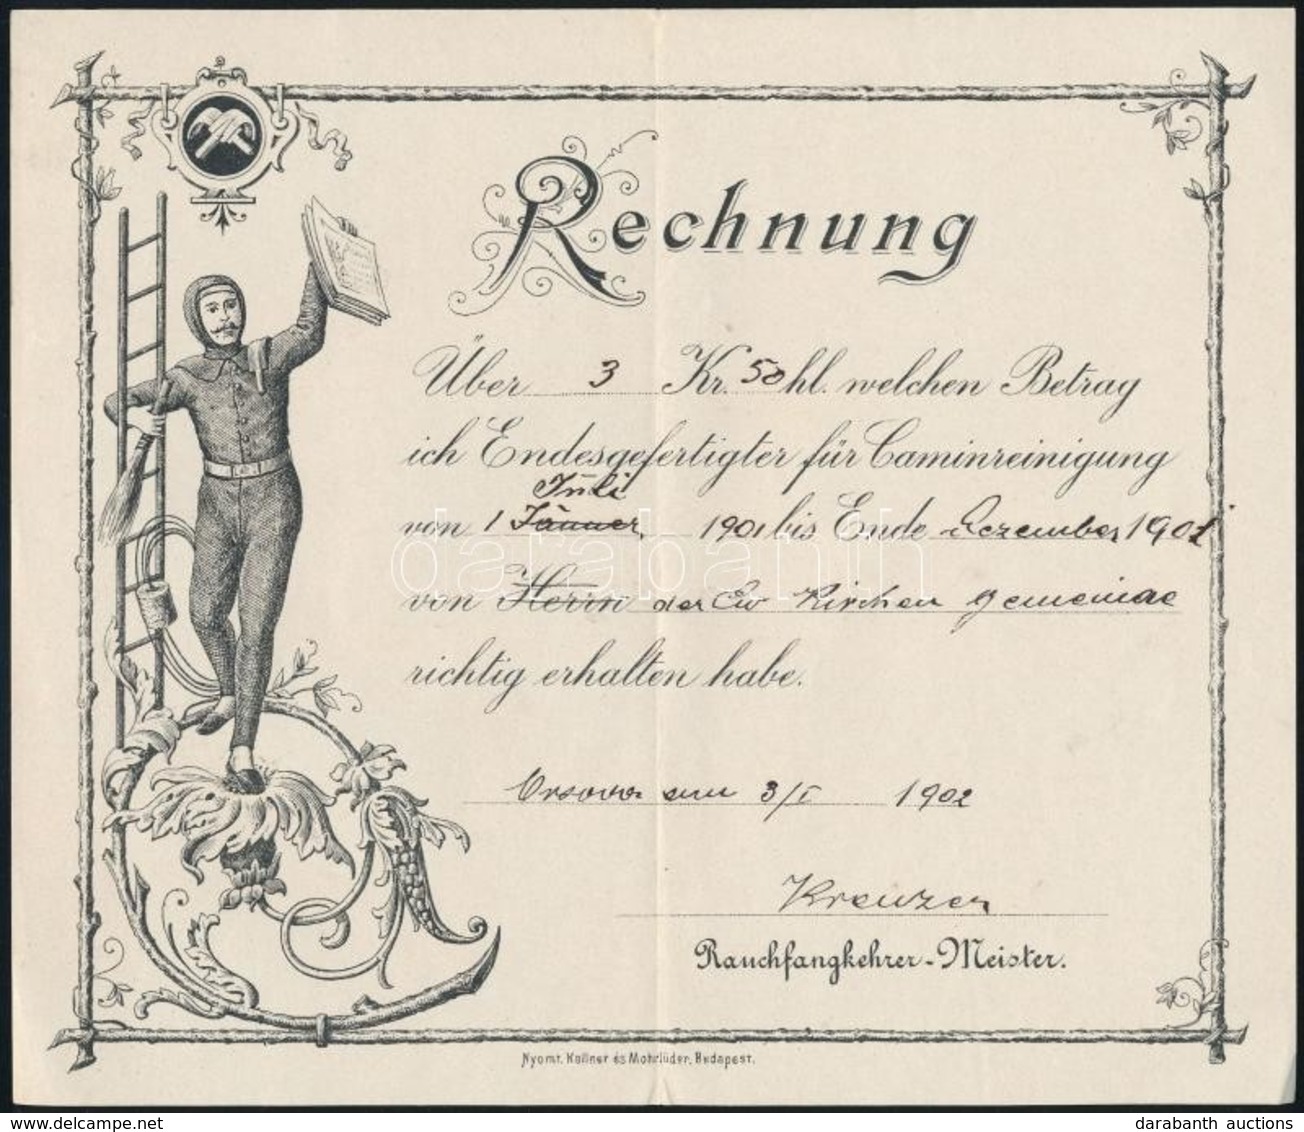 Rechnung
Über 3 Kr. 50 hl. welchen Betrag
ich Endesgefertigter für Caminreinigung
Juli
von 1 Jänner 1901 bis Ende Dezember 1901
von Herrn der Ev Kirchen gemeinde
richtig erhalten habe.
Orsova am 3/I 1902
Kreuzer
Rauchfangkehrer-Meister.
Nyomt. Kollner és Mohrlüder, Budapest.
darabanth
delcampe.net
darabanth auctions